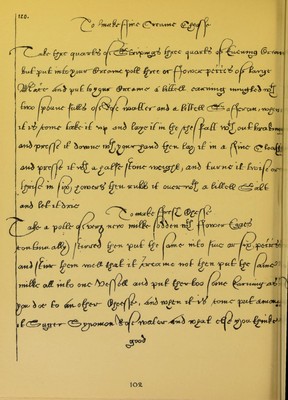 To make fine Creame Cheese
Take thre quarts of Stropings three quarts of Euening Creame
but put into your Creame put thre or flower peices of large
Mace and put to your Creame a littell earning mingled wth
two spoune falls of Rose watter and a littell Saferon, when
it is come take it up and laye it in the cheesfatt wth out breaking
and presse it downe wth your hand then lay it in a fine Cloath
and presse it wth a halfe stone weight, and turne it twise or
thrise in six howers then rubb it ouer wth a littell Salt
and let it drie
To make fresh Cheese
Take a pottle of very new milke sodden wth flower Egges
continually sturred then put the same into fiue or six peices
and sturr them well that it creame not then put the same
milke all into one Vessell and put therto some Earning as
you doe to an other Cheese, and when it is come put among
it Suger Synomon Rose watter and what else you thinke
good
102